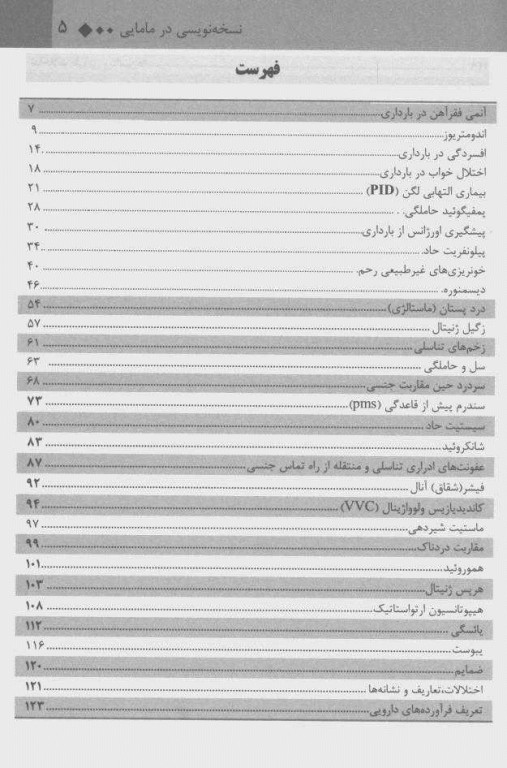 نسخه‌نویسی در مامایی ●●◆ ۵
فهرست
آنمی فقرآهن در بارداری ۷
اندومتریوز ۹
افسردگی در بارداری ۱۴
اختلال خواب در بارداری ۱۸
بیماری التهابی لگن (PID) ۲۱
پمفیگوئید حاملگی ۲۸
پیشگیری اورژانس از بارداری ۳۰
پیلونفریت حاد ۳۴
خونریزی‌های غیرطبیعی رحم ۴۰
دیسمنوره ۴۶
درد پستان (ماستالژی) ۵۴
زگیل ژنیتال ۵۷
زخم‌های تناسلی ۶۱
سل و حاملگی ۶۳
سردرد حین مقاربت جنسی ۶۸
سندرم پیش از قاعدگی (pms) ۷۳
سیستیت حاد ۸۰
شانکروئید ۸۳
عفونت‌های ادراری تناسلی و منتقله از راه تماس جنسی ۸۷
فیشر(شقاق) آنال ۹۲
کاندیدیازیس ولوواژینال (VVC) ۹۴
ماستیت شیردهی ۹۷
مقاربت دردناک ۹۹
هموروئید ۱۰۱
هرپس ژنیتال ۱۰۳
هیپوتانسیون ارتواستاتیک ۱۰۸
یائسگی ۱۱۲
یبوست ۱۱۶
ضمایم ۱۲۰
اختلالات،تعاریف و نشانه‌ها ۱۲۱
تعریف فرآورده‌های دارویی ۱۲۳